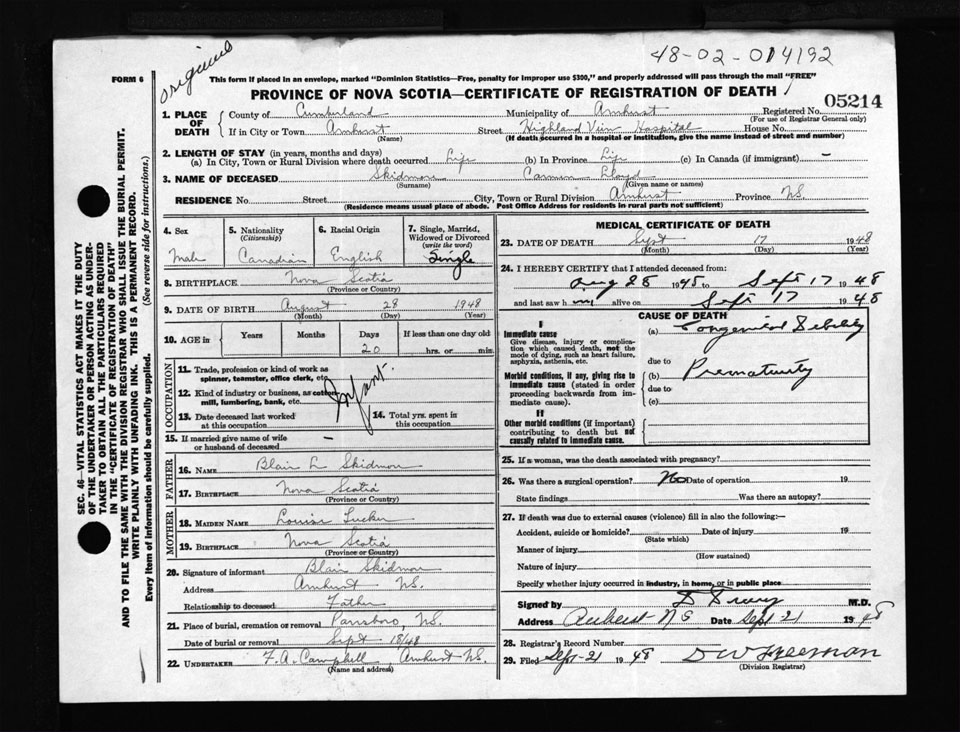 original
48-02-014192
FORM 6
This form if placed in an envelope, marked "Dominion Statistics—Free, penalty for improper use $300," and properly addressed will pass through the mail "FREE"
PROVINCE OF NOVA SCOTIA—CERTIFICATE OF REGISTRATION OF DEATH
05214
1. PLACE OF DEATH
County of Cumberland Municipality of Amherst Registered No.
(For use of Registrar General only)
If in City or Town Amherst Street Highland View Hospital House No.
(Name) (If death occurred in a hospital or institution, give the name instead of street and number)
2. LENGTH OF STAY (in years, months and days)
(a) In City, Town or Rural Division where death occurred Life (b) In Province Life (c) In Canada (if immigrant) —
3. NAME OF DECEASED Skidmore Carmen Lloyd
(Surname) (Given name or names)
RESIDENCE No. Street City, Town or Rural Division Amherst Province N.S.
(Residence means usual place of abode. Post Office Address for residents in rural parts not sufficient)
4. Sex Male
5. Nationality (Citizenship) Canadian
6. Racial Origin English
7. Single, Married, Widowed or Divorced (write the word) Single
8. BIRTHPLACE Nova Scotia
9. DATE OF BIRTH August 28 1948
(Month) (Day) (Year)
10. AGE in Years Months Days If less than one day old
20 hrs. or min.
OCCUPATION
11. Trade, profession or kind of work as spinner, teamster, office clerk, etc.
12. Kind of industry or business, as cotton mill, lumbering, bank, etc.
Infant.
13. Date deceased last worked at this occupation
14. Total yrs. spent in this occupation
15. If married give name of wife or husband of deceased —
FATHER
16. NAME Blair L Skidmore
17. BIRTHPLACE Nova Scotia
(Province or Country)
MOTHER
18. MAIDEN NAME Louise Tucker
19. BIRTHPLACE Nova Scotia
(Province or Country)
20. Signature of informant Blair Skidmore
Address Amherst N.S.
Relationship to deceased Father
21. Place of burial, cremation or removal Parrsboro, N.S.
Date of burial or removal Sept 18/48
22. UNDERTAKER F. A. Campbell, Amherst N.S.
(Name and address)
MEDICAL CERTIFICATE OF DEATH
23. DATE OF DEATH Sept 17 1948
(Month) (Day) (Year)
24. I HEREBY CERTIFY that I attended deceased from:
Aug 28 1948 to Sept 17 1948
and last saw h im alive on Sept 17 1948
CAUSE OF DEATH
I
Immediate cause
Give disease, injury or complication which caused death, not the mode of dying, such as heart failure, asphyxia, asthenia, etc.
(a) Congenital Debility
due to
Morbid conditions, if any, giving rise to immediate cause (stated in order proceeding backwards from immediate cause).
(b) Prematurity
due to
(c)
II
Other morbid conditions (if important) contributing to death but not causally related to immediate cause.
25. If a woman, was the death associated with pregnancy?
26. Was there a surgical operation? No Date of operation 19
State findings Was there an autopsy?
27. If death was due to external causes (violence) fill in also the following:—
Accident, suicide or homicide? Date of injury 19
(State which)
Manner of injury
(How sustained)
Nature of injury
Specify whether injury occurred in industry, in home, or in public place
Signed by M.D.
Address Amherst N S Date Sept 21 1948
28. Registrar's Record Number
29. Filed Sept-21 1948 D W Freeman
(Division Registrar)
SEC. 46—VITAL STATISTICS ACT MAKES IT THE DUTY
OF THE UNDERTAKER OR PERSON ACTING AS UNDERTAKER
TO OBTAIN ALL THE PARTICULARS REQUIRED
IN THE "CERTIFICATE OF REGISTRATION OF DEATH"
AND TO FILE THE SAME WITH THE DIVISION REGISTRAR WHO SHALL ISSUE THE BURIAL PERMIT.
WRITE PLAINLY WITH UNFADING INK. THIS IS A PERMANENT RECORD.
Every item of information should be carefully supplied. (See reverse side for instructions.)